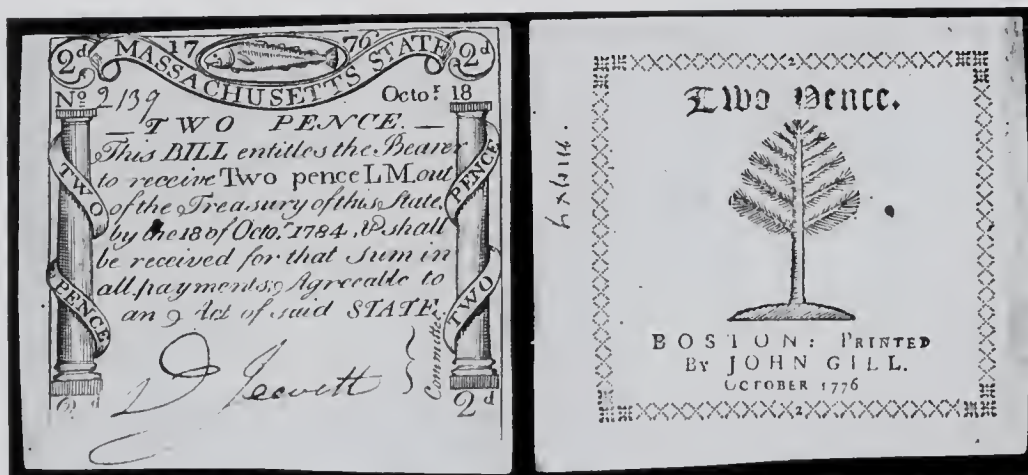 2d 17 76 2d
MASSACHUSETTS STATE
No 2139 Octor. 18
TWO PENCE.
This BILL entitles the Bearer
to receive Two pence LM. out
of the Treasury of this State,
by the 18 of Octor. 1784. & shall
be received for that Sum in
all payments, Agreeable to
an Act of said STATE
TWO
PENCE
PENCE
TWO
D Jewett
Committee
2d 2d
2
Two Pence.
BOSTON: PRINTED
BY JOHN GILL.
OCTOBER 1776
2